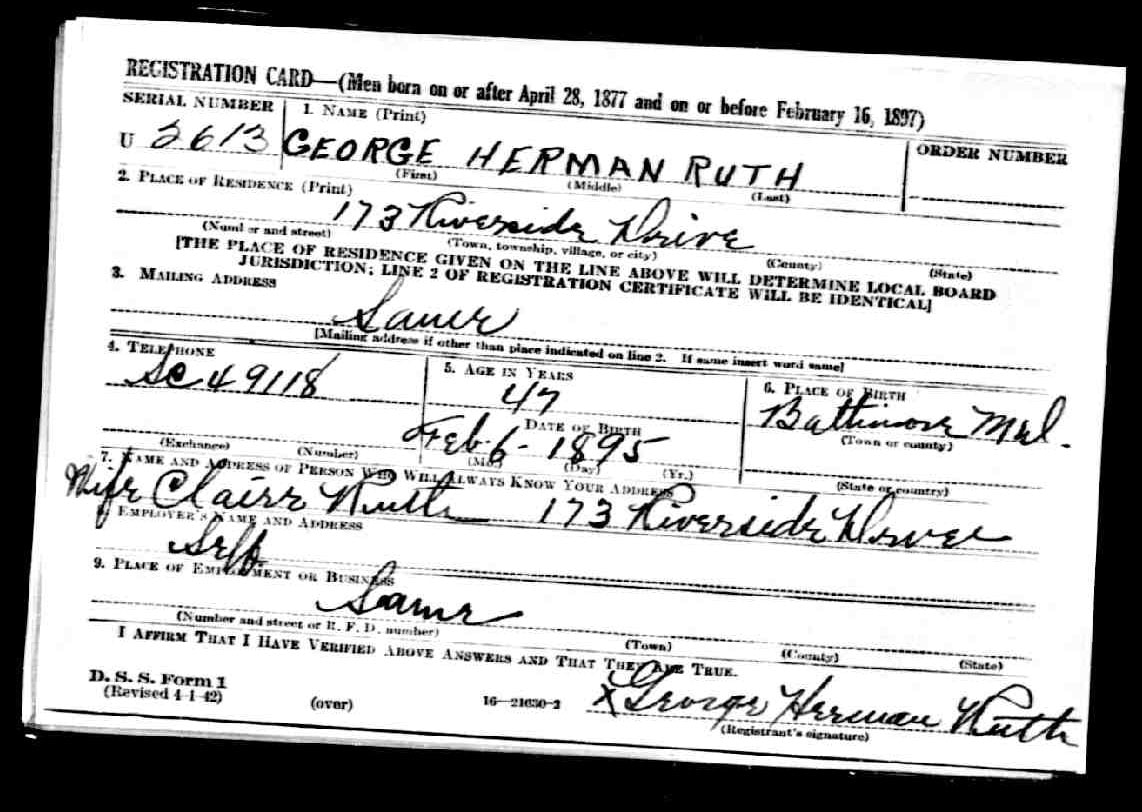 REGISTRATION CARD—(Men born on or after April 28, 1877 and on or before February 16, 1897)
SERIAL NUMBER 1. NAME (Print) ORDER NUMBER
U 2613 GEORGE HERMAN RUTH
(First) (Middle) (Last)
2. PLACE OF RESIDENCE (Print)
173 Riverside Drive
(Number and street) (Town, township, village, or city) (County) (State)
[THE PLACE OF RESIDENCE GIVEN ON THE LINE ABOVE WILL DETERMINE LOCAL BOARD
JURISDICTION; LINE 2 OF REGISTRATION CERTIFICATE WILL BE IDENTICAL]
3. MAILING ADDRESS
Same
[Mailing address if other than place indicated on line 2. If same insert word same]
4. TELEPHONE 5. AGE IN YEARS 6. PLACE OF BIRTH
Sc 49118 47 Baltimore Md.
DATE OF BIRTH (Town or county)
Feb-6-1895
(Exchange) (Number) (Mo.) (Day) (Yr.) (State or country)
7. NAME AND ADDRESS OF PERSON WHO WILL ALWAYS KNOW YOUR ADDRESS
Wife Claire Ruth 173 Riverside Drive
EMPLOYER'S NAME AND ADDRESS
Self
9. PLACE OF EMPLOYMENT OR BUSINESS
Same
(Number and street or R. F. D. number) (Town) (County) (State)
I AFFIRM THAT I HAVE VERIFIED ABOVE ANSWERS AND THAT THEY ARE TRUE.
D. S. S. Form 1
(Revised 4-1-42) (over) 16—21630-2 X George Herman Ruth
(Registrant's signature)